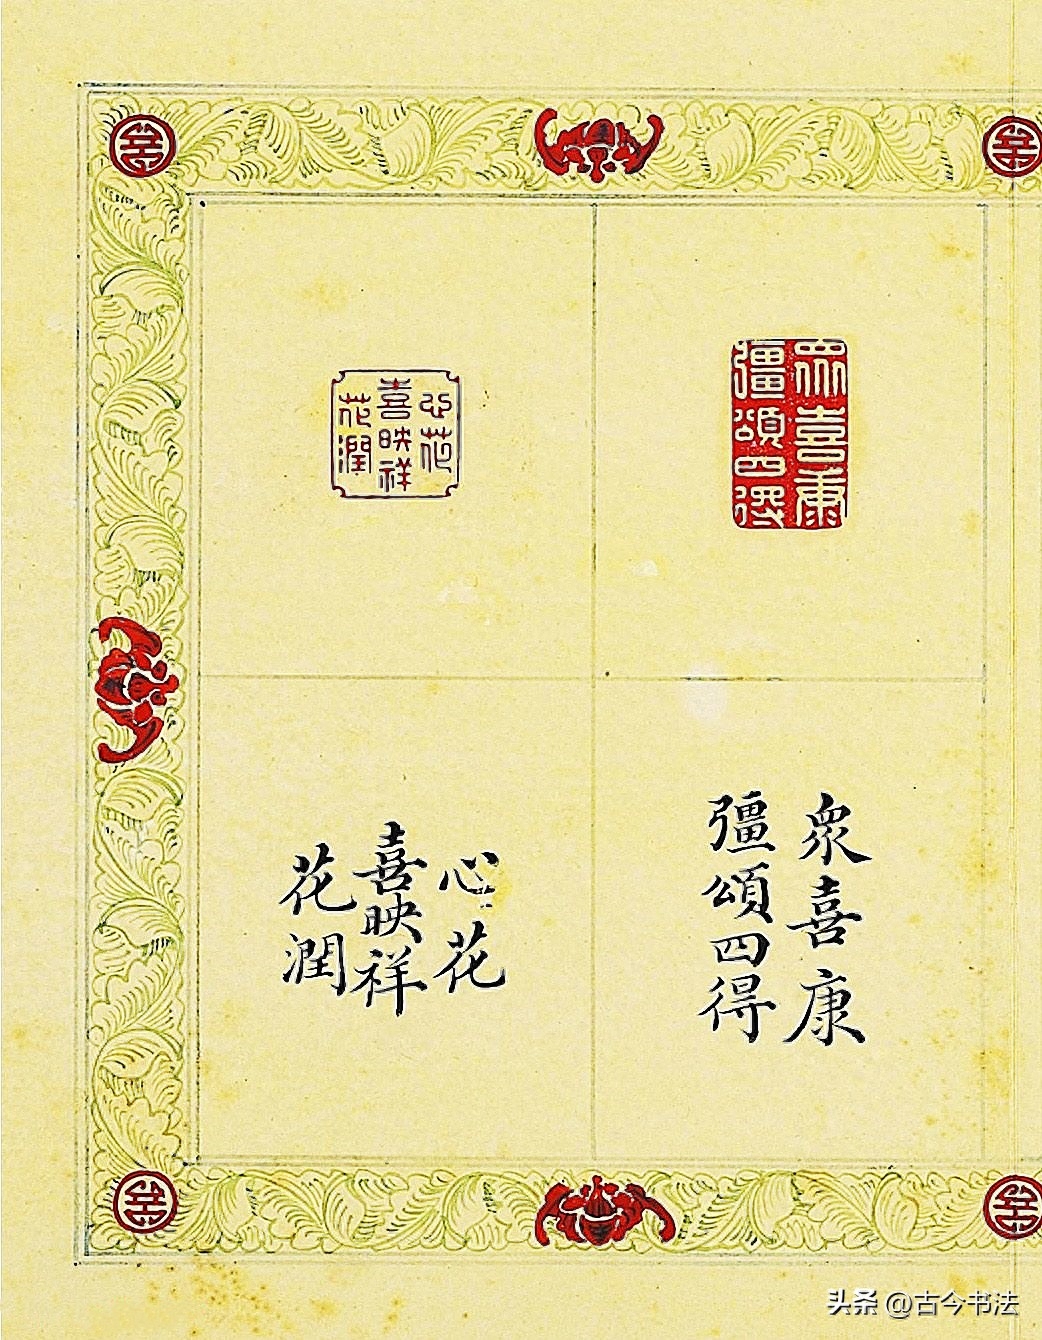 眾喜康
彊頌四得
心花
喜映祥
花潤
眾喜康
彊頌四得
心花
喜映祥
花潤
头条 @古今书法